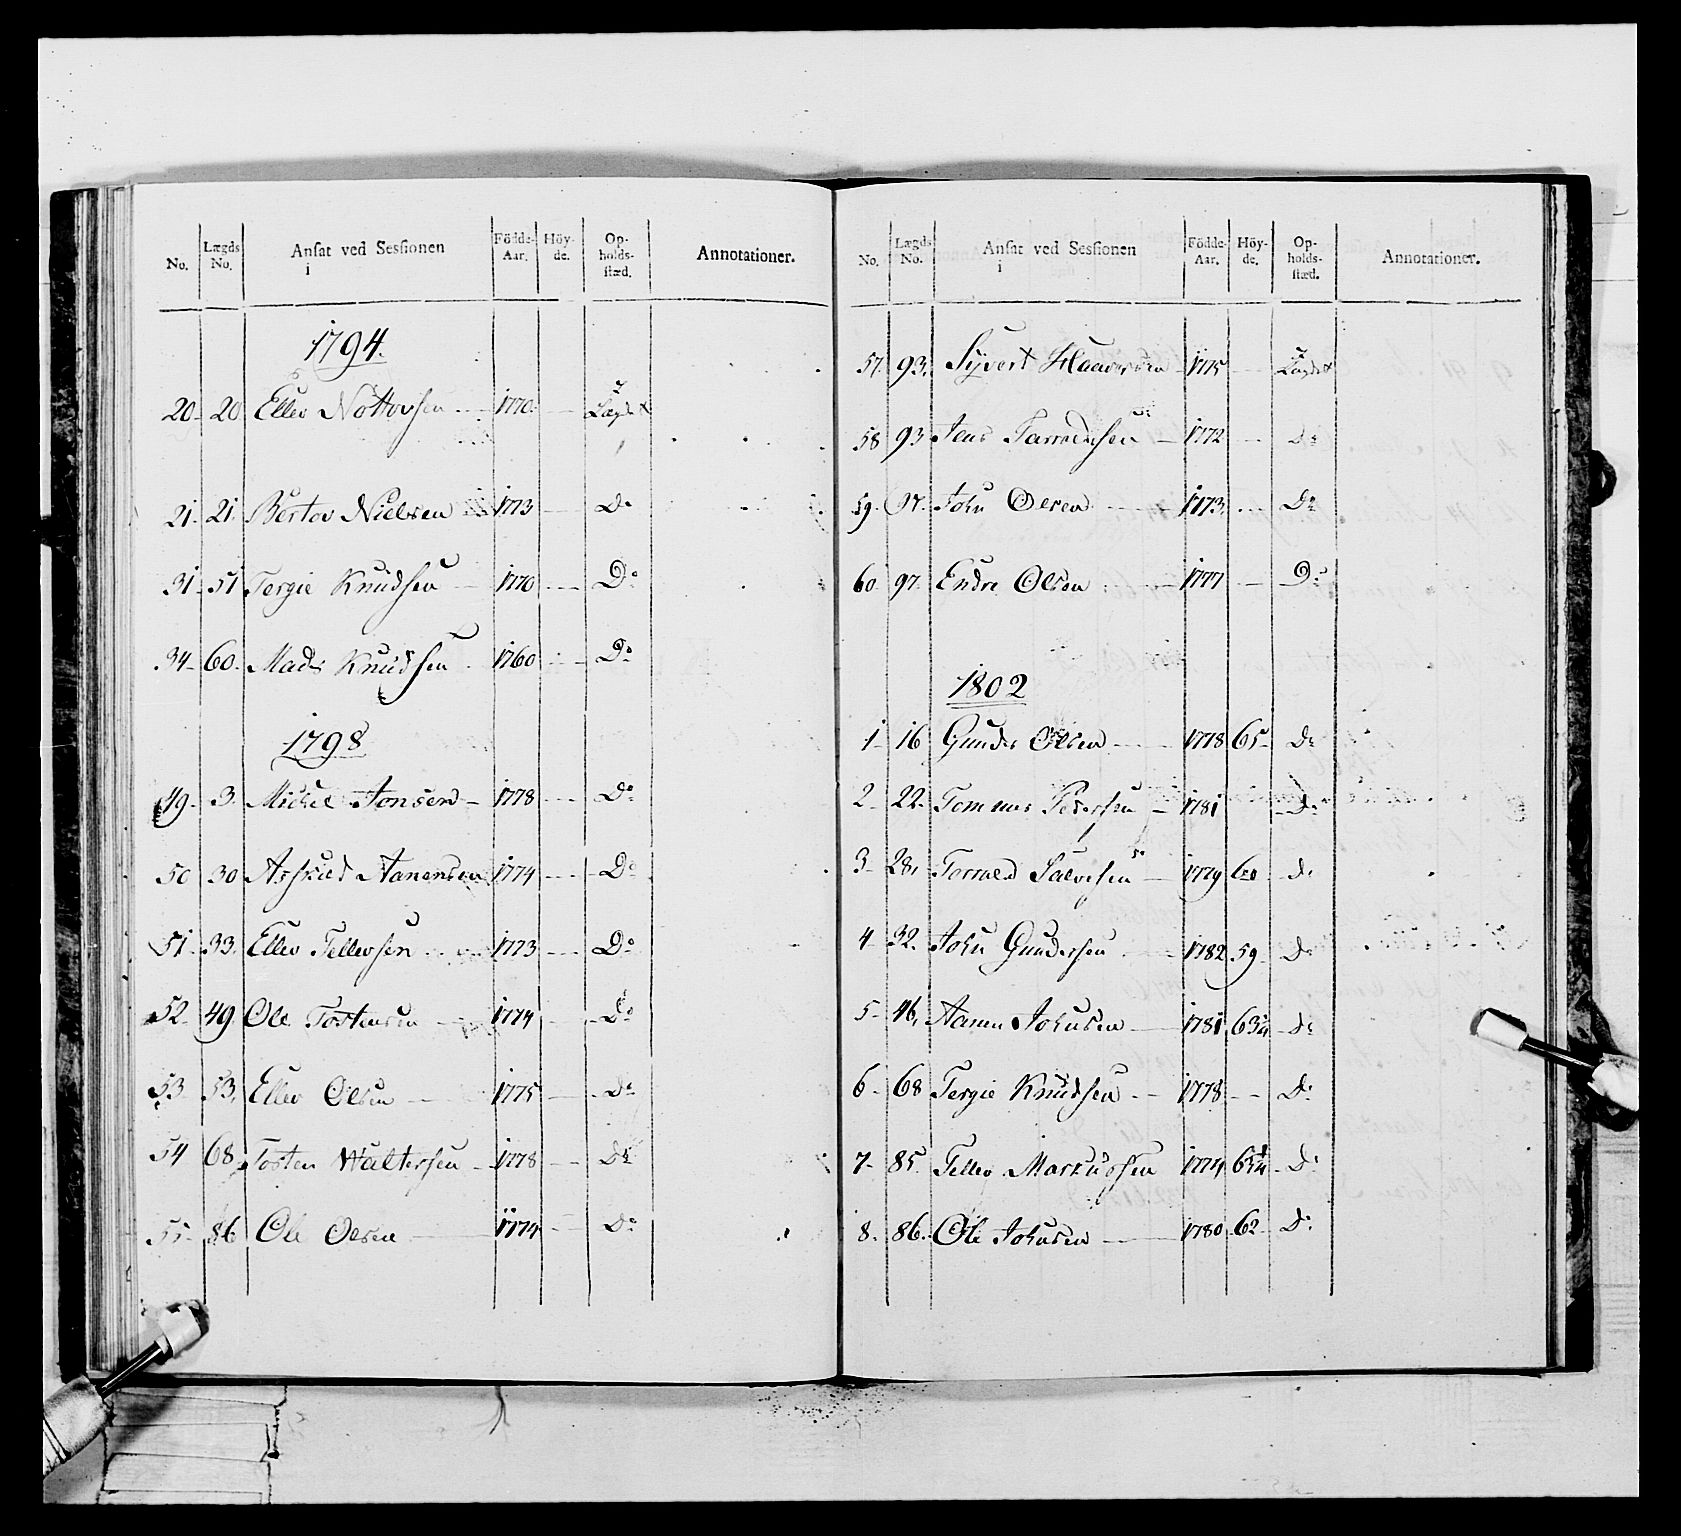 No. Lægds No. Ansat ved Sessionen i Födde-Aar. Höy-de. Op-holds-stæd. Annotationer.
1794.
20 20 Ellev Nottovsen 1770 Lægdet
21 21 Bertov Nielsen 1773 Do
31 51 Tergie Knudsen 1770 Do
34 60 Mads Knudsen 1760 Do
1798
49 3 Michel Jonsen 1778 Do
50 30 Aanensen 1774 Do
51 33 Ellev Tellevsen 1773 Do
52 49 Ole Tostensen 1774 Do
53 53 Ellev Olsen 1775 Do
54 68 Tosten Waltersen 1778 Do
55 86 Ole Olsen 1774 Do
No. Lægds No. Ansat ved Sessionen i Födde-Aar. Höy-de. Op-holds-stæd. Annotationer.
57 93 Syvert Haaversen 1775 Lægdet
58 93 Jens 1772 Do
59 97 John Olsen 1773 Do
60 97 Endre Olsen 1777 Do
1802
1 16 Gunder Olsen 1778 65 Do
2 22 Tommes Pedersen 1781 Do
3 28 Tormod Salvesen 1779 60 Do
4 32 John Gundersen 1782 59 Do
5 46 Aanen Johnsen 1781 Do
6 68 Tergie Knudsen 1778 Do
7 85 Tellev Markussen 1774 Do
8 86 Ole Johnsen 1780 62 Do